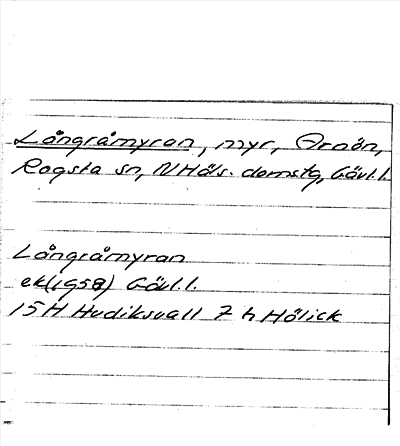 Långråmyran, myr, Arnön,
Rogsta sn, N Häls. domstg, Gävl.l.
Långråmyran
ek(1958) Gävl.l.
15H Hudiksvall 7 h Hölick